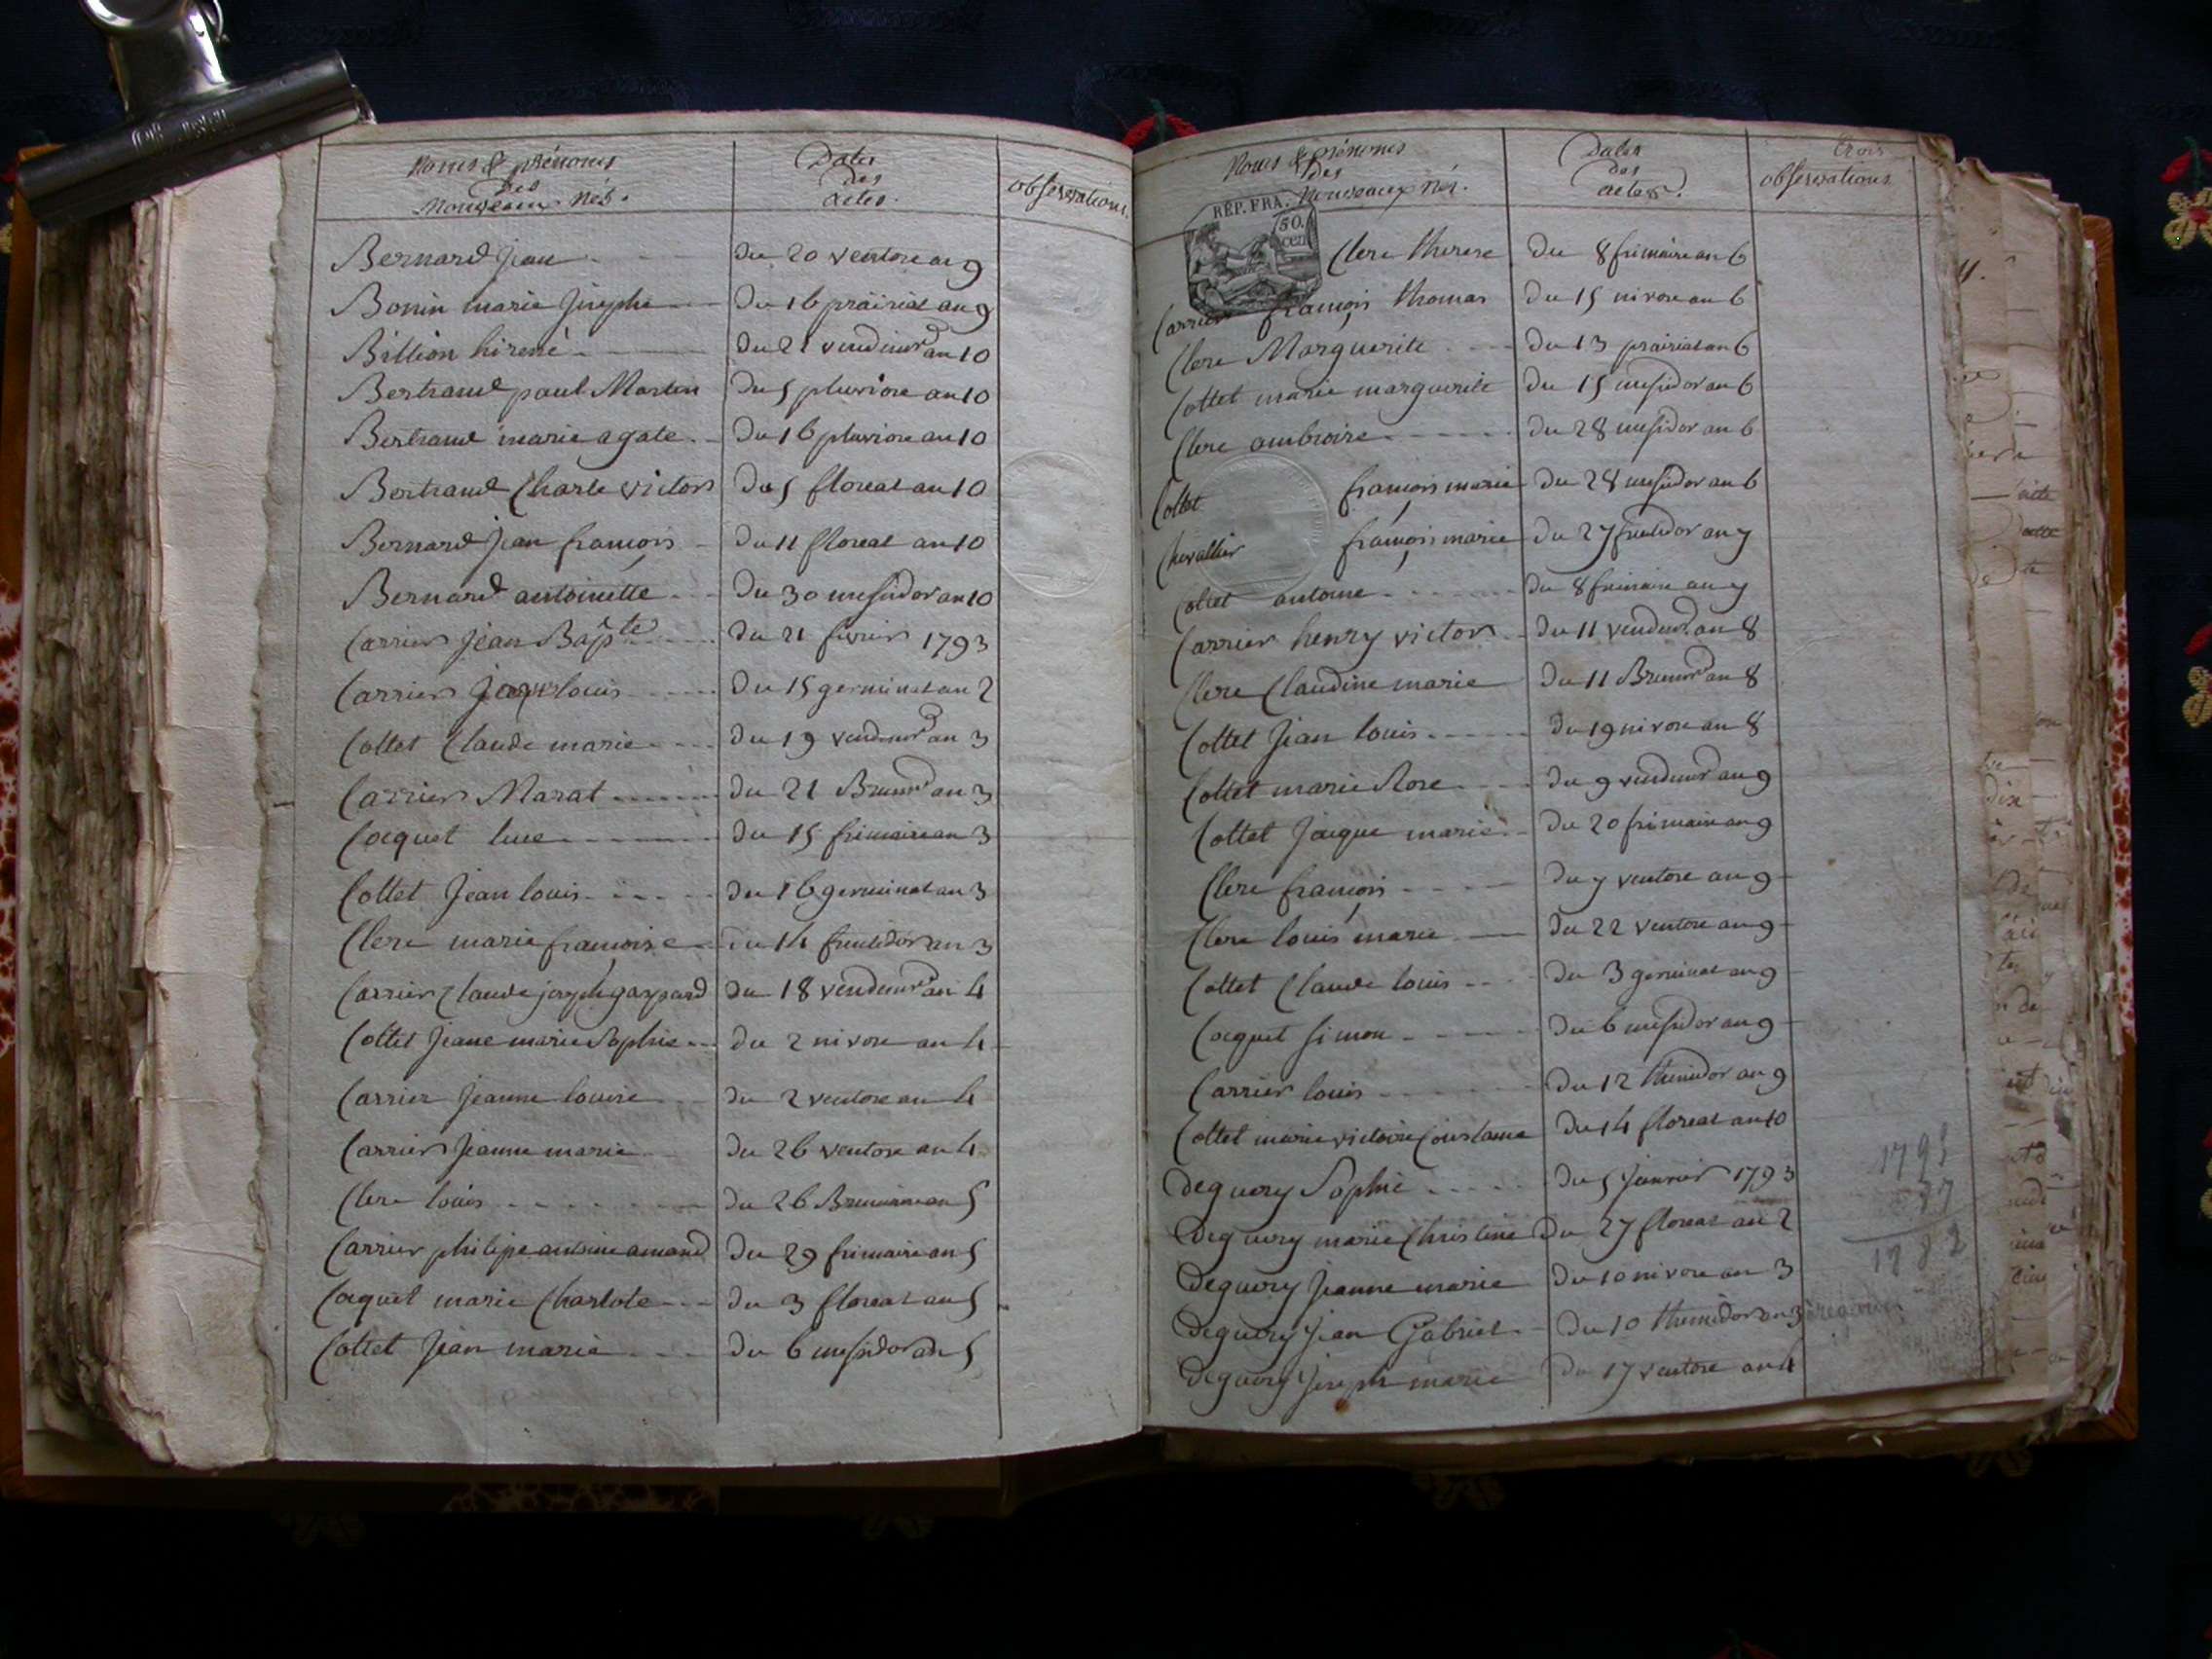 Noms & prénoms
des
Nouveaux Nés.
Dates
des
actes.
observations.
Bernard Jean
Du 20 ventose an 9
Bonin marie Josephe
Du 16 prairial an 9
Billion hirené
Du 21 vendemr an 10
Bertrand paul Martin
Du 5 pluviose an 10
Bertrand marie agate
Du 16 pluviose an 10
Bertrand Charle victor
Du 5 floreal an 10
Bernard Jean françois
Du 11 floreal an 10
Bernard antoinette
Du 30 messidor an 10
Carrier Jean Bapte
Du 21 fevrier 1793
Carrier Jean louis
Du 15 germinal an 2
Collet Claude marie
Du 19 vendemr an 3
Carrier Marat
Du 21 Brumr an 3
Coquet luce
Du 15 frimaire an 3
Collet Jean louis
Du 16 germinal an 3
Clerc marie françoise
Du 14 fructidor an 3
Carrier Claude joseph gaspard
Du 18 vendemr an 4
Collet Jeane marie Sophie
Du 2 nivose an 4
Carrier Jeanne louise
Du 2 ventose an 4
Carrier Jeanne marie
Du 26 ventose an 4
Clerc louis
Du 26 Brumaire an 5
Carrier philipe antoine amand
Du 29 frimaire an 5
Coquet marie Charlote
Du 3 floreal an 5
Collet Jean marie
Du 6 messidor an 5
Noms & prénoms
des
Nouveaux nés.
Dates
des
actes.
trois
observations
REP. FRA.
50.
cen
Clerc therese
Du 8 frimaire an 6
Carrier françois thomas
Du 15 nivose an 6
Clerc Marguerite
Du 13 prairial an 6
Collet marie marguerite
Du 15 messidor an 6
Clerc ambroise
Du 28 messidor an 6
Collet françois marie
Du 28 messidor an 6
Chevallier françois marie
Du 27 fructidor an 7
Collet antoine
Du 8 frimaire an 7
Carrier henry victor
Du 11 vendemr an 8
Clerc Claudine marie
Du 11 Brumr an 8
Collet Jean louis
Du 19 nivose an 8
Collet marie Rose
Du 9 vendemr an 9
Collet Jacque marie
Du 20 frimaire an 9
Clerc françois
Du 7 ventose an 9
Clerc louis marie
Du 22 ventose an 9
Collet Claude louis
Du 3 germinal an 9
Coquet simon
Du 6 messidor an 9
Carrier louis
Du 12 thermidor an 9
Collet marie victoire Constance
Du 14 floreal an 10
deguery Sophie
Du 5 Janvier 1793
deguery marie Christine
Du 27 floreal an 2
deguery Jeanne marie
Du 10 nivose an 3
deguery Jean Gabriel
Du 10 thermidor an 3
deguery Joseph marie
Du 17 ventose an 4